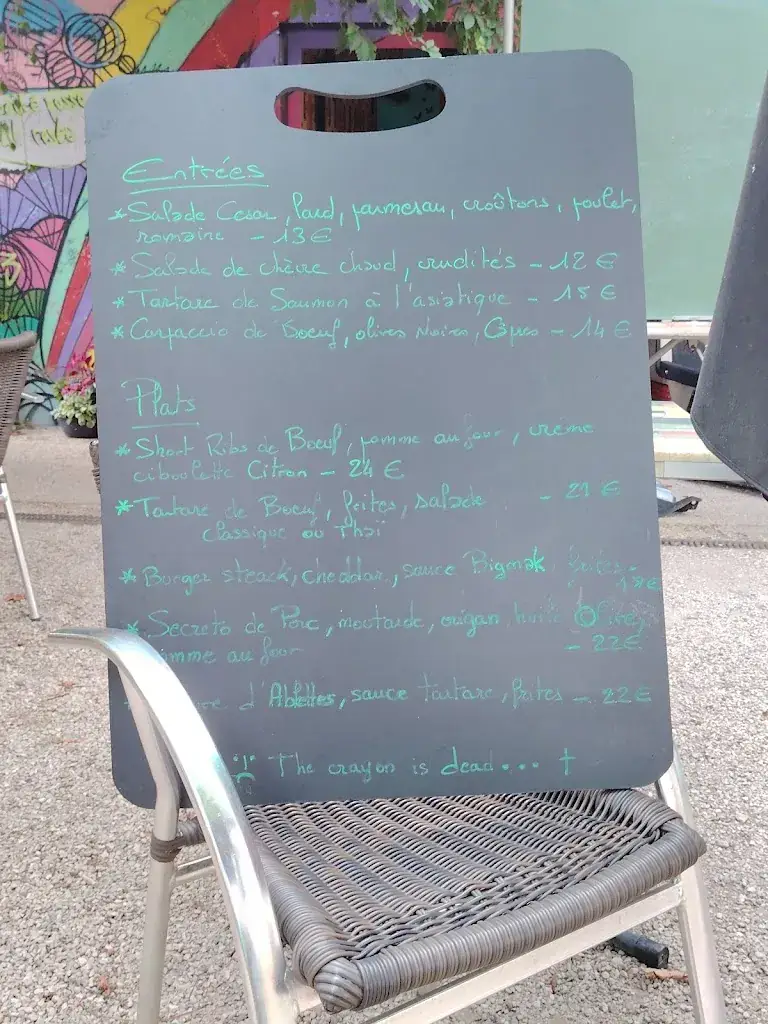 Entrées
*Salade Cesar, lard, parmesan, croûtons, poulet,
romaine - 13€
*Salade de chèvre chaud, crudités - 12 €
*Tartare de Saumon à l'asiatique - 15 €
*Carpaccio de Boeuf, olives Noires, Câpres - 14 €
Plats
*Short Ribs de Boeuf, pomme au four, crème
ciboulette Citron - 24 €
*Tartare de Boeuf, frites, salade - 21 €
classique ou Thaï
*Burger steack, cheddar, sauce Bigmak, frites -
*Secreto de Porc, moutarde, origan, huile Olive,
pomme au four - 22€
d'Ablettes, sauce tartare, frites - 22€
The crayon is dead... †